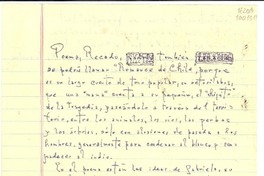 Poema, Recado, también
se podría llamar "Romance de Chile, porque
es un largo cuento de tono popular, en
que una "mamá" cuenta a su pequeño, el
de la tragedia, paseándolo a través del territorio,
entre los animales, los ríos, las yerbas
y los árboles, sólo con alusiones de pasada a los
hombres, generalmente para condenar al blanco y com-
padecer al indio.
En el poema están las ideas de Gabriela, su